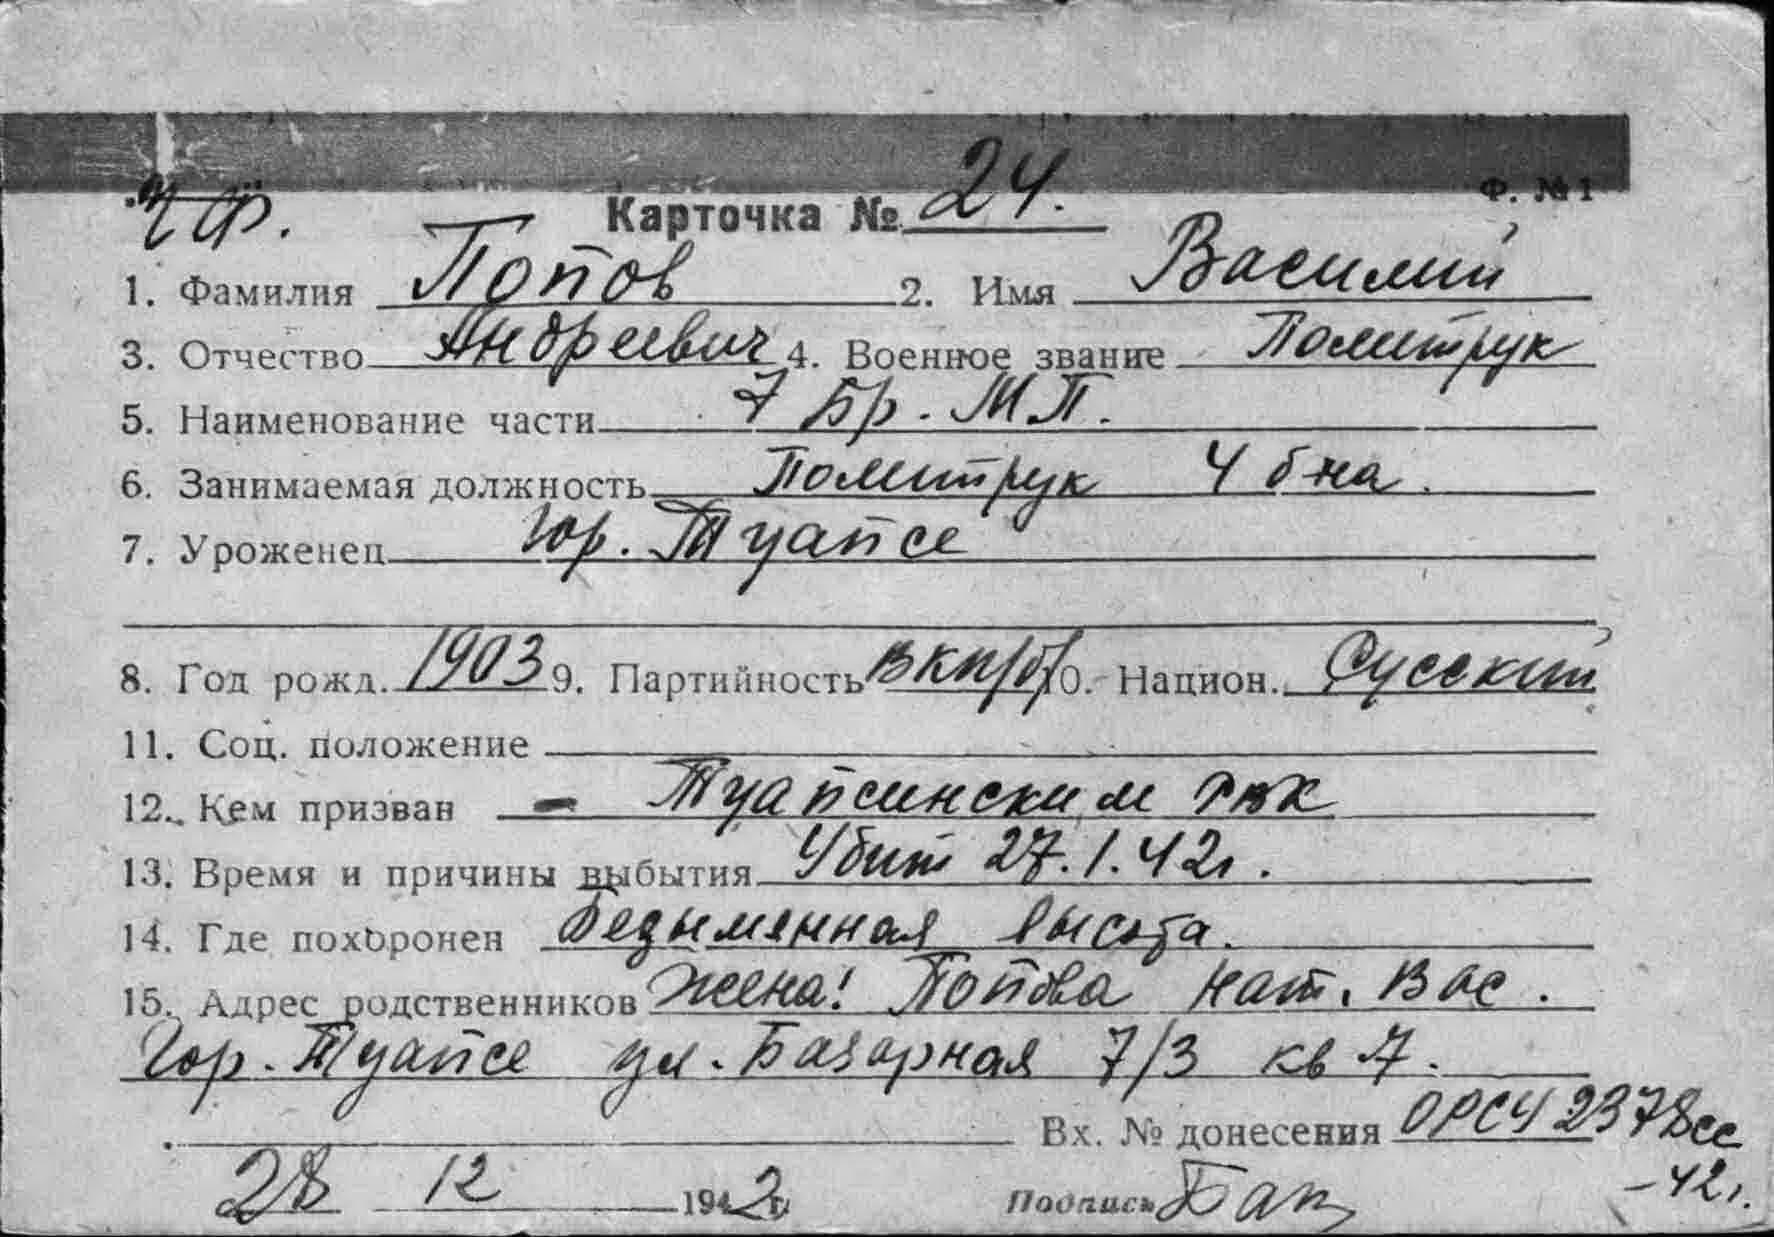 Ф. №1
ЧФ. Карточка № 24.
1. Фамилия Попов 2. Имя Василий
3. Отчество Андреевич 4. Военное звание Политрук
5. Наименование части 7 Бр. МП.
6. Занимаемая должность Политрук 4 б-на.
7. Уроженец гор. Туапсе
8. Год рожд. 1903 9. Партийность ВКП(б) 10. Национ. Русский
11. Соц. положение
12. Кем призван - Туапсинским РВК
13. Время и причины выбытия Убит 27.1.42г.
14. Где похоронен Безыменная высота.
15. Адрес родственников Жена: Попова Нат. Вас.
Гор. Туапсе ул. Базарная 7/3 кв 7.
Вх. № донесения ОРСЧ 2378сс
-42г.
28 12 1942г. Подпись